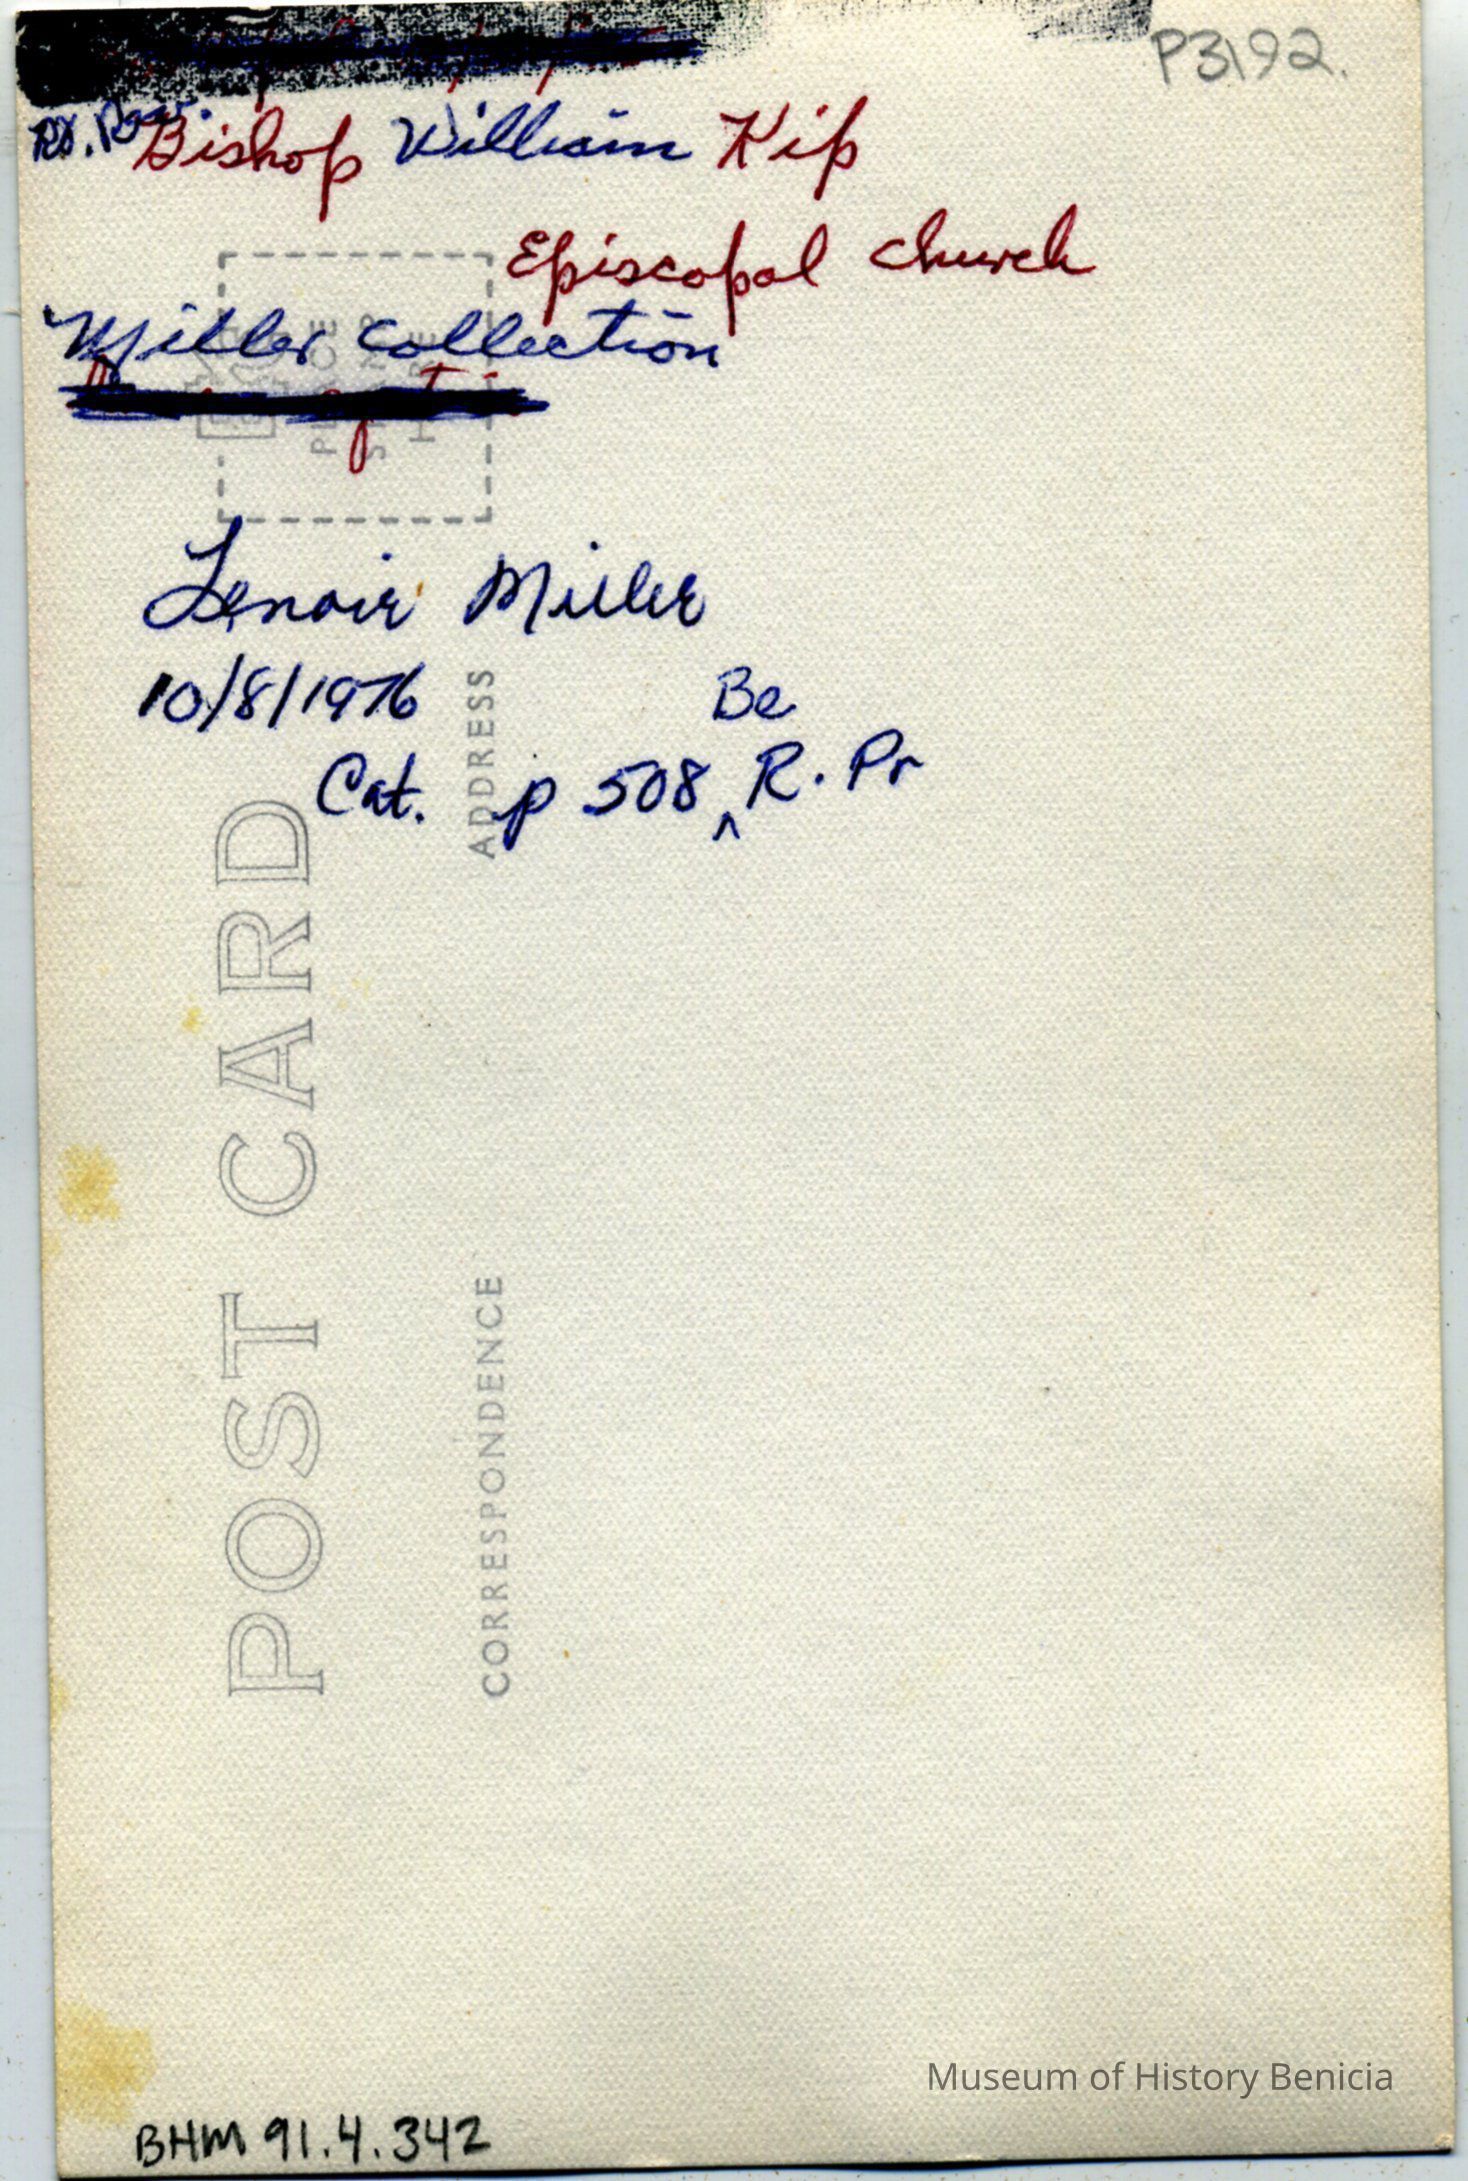 P3192.
Rt. Rev. Bishop William Kip
Episcopal church
Miller collection
PLACE
STAMP
HERE
Lenoir Miller
10/8/1976
Be
Cat. p 508 ^ R. Pr
ADDRESS
POST CARD
CORRESPONDENCE
Museum of History Benicia
BHM 91.4.342